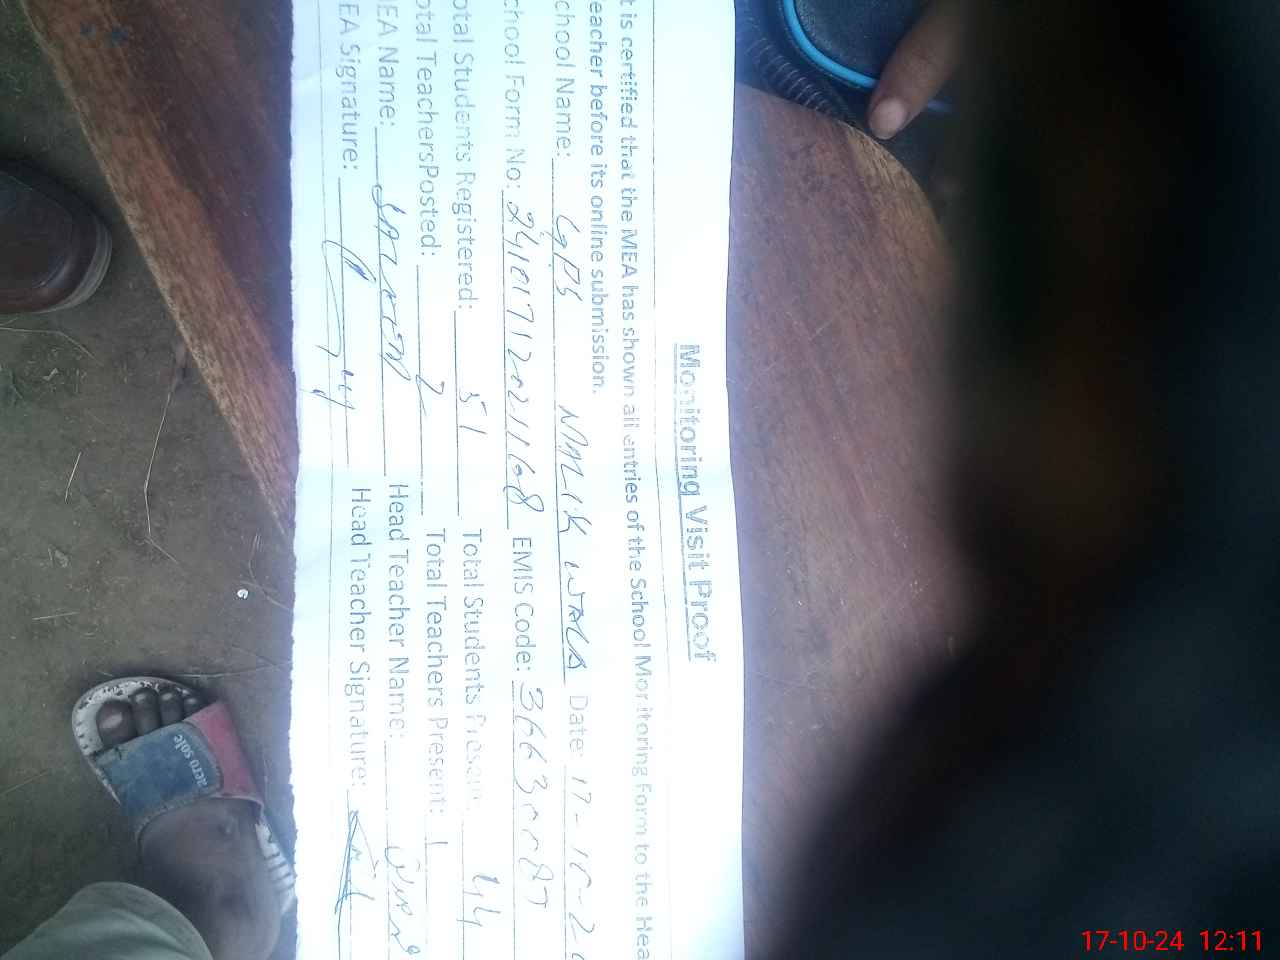 Monitoring Visit Proof
t is certified that the MEA has shown all entries of the School Monitoring Form to the Hea
eacher before its online submission.
chool Name: GPS MALIK WALA Date: 17-10-2
chool Form No: EMIS Code:
otal Students Registered: 51 Total Students Present: 44
otal TeachersPosted: 2 Total Teachers Present: 1
EA Name: Head Teacher Name:
EA Signature: Head Teacher Signature:
aero sole
17-10-24 12:11